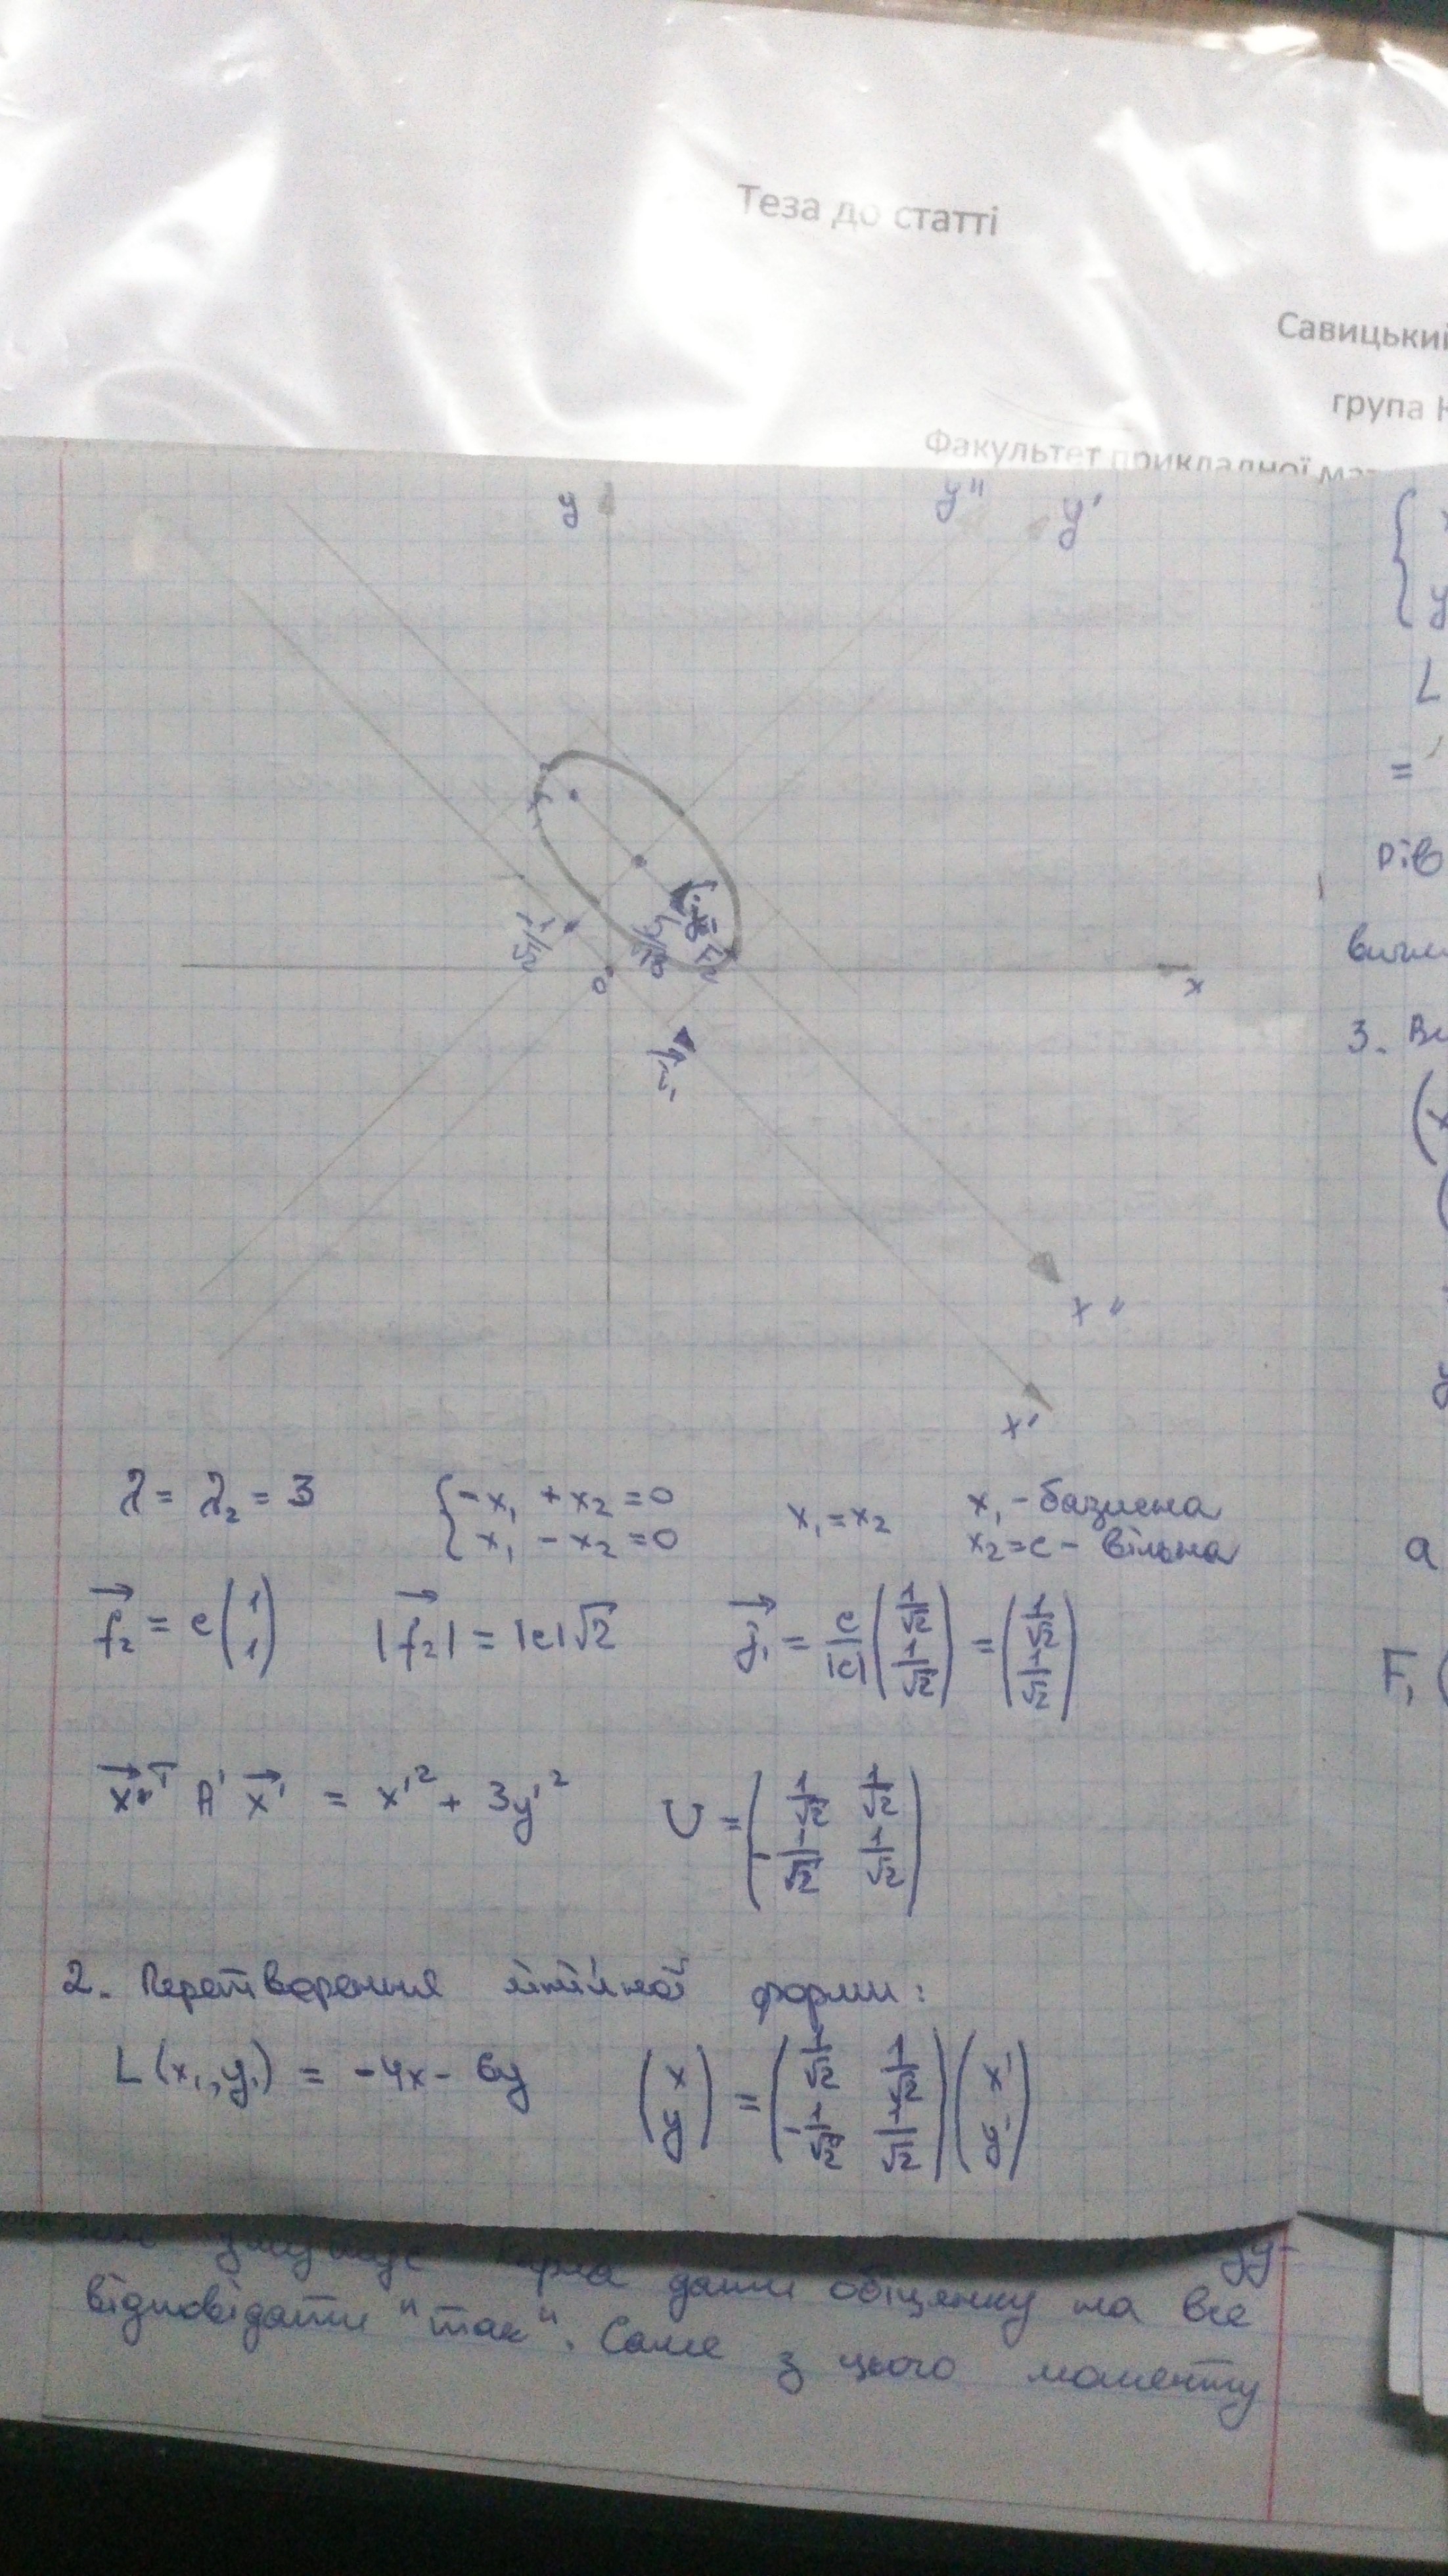 Теза до статті
Савицький
група К
Факультет прикладної мат
y y'' y'
x
0
-1/√2 5/√2
i₁
x''
x'
λ = λ₂ = 3 { -x₁ + x₂ = 0 x₁ - x₂ = 0 x₁ = x₂ x₁ - базисна x₂ = c - вільна
f₂ = c (1 1) |f₂| = |c|√2 j₁ = c/|c| (1/√2 1/√2) = (1/√2 1/√2)
x'ᵀ A' x' = x'² + 3y'² U = (1/√2 1/√2 -1/√2 1/√2)
2. Перетворення лінійної форми:
L(x₁, y₁) = -4x - 6y (x y) = (1/√2 1/√2 -1/√2 1/√2) (x' y')
дати обіцянку на все
відповідати "так". Саме з цього моменту
{
y
L
=
Рів
3. Ви
(x
a
F₁ (